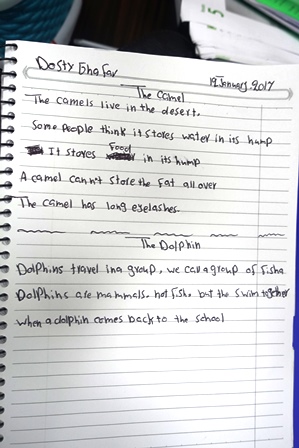 Dosty Ghafar
19 January. 2017
The Camel
The camels live in the desert.
Some People think it stores water in its hump
It stores Food in its hump
A camel can't store the fat all over
The camel has long eyelashes.
The Dolphin
Dolphins travel in a group, we call a group of fish a
Dolphins are mammals. not fish. but the swim together
when a dolphin comes back to the school